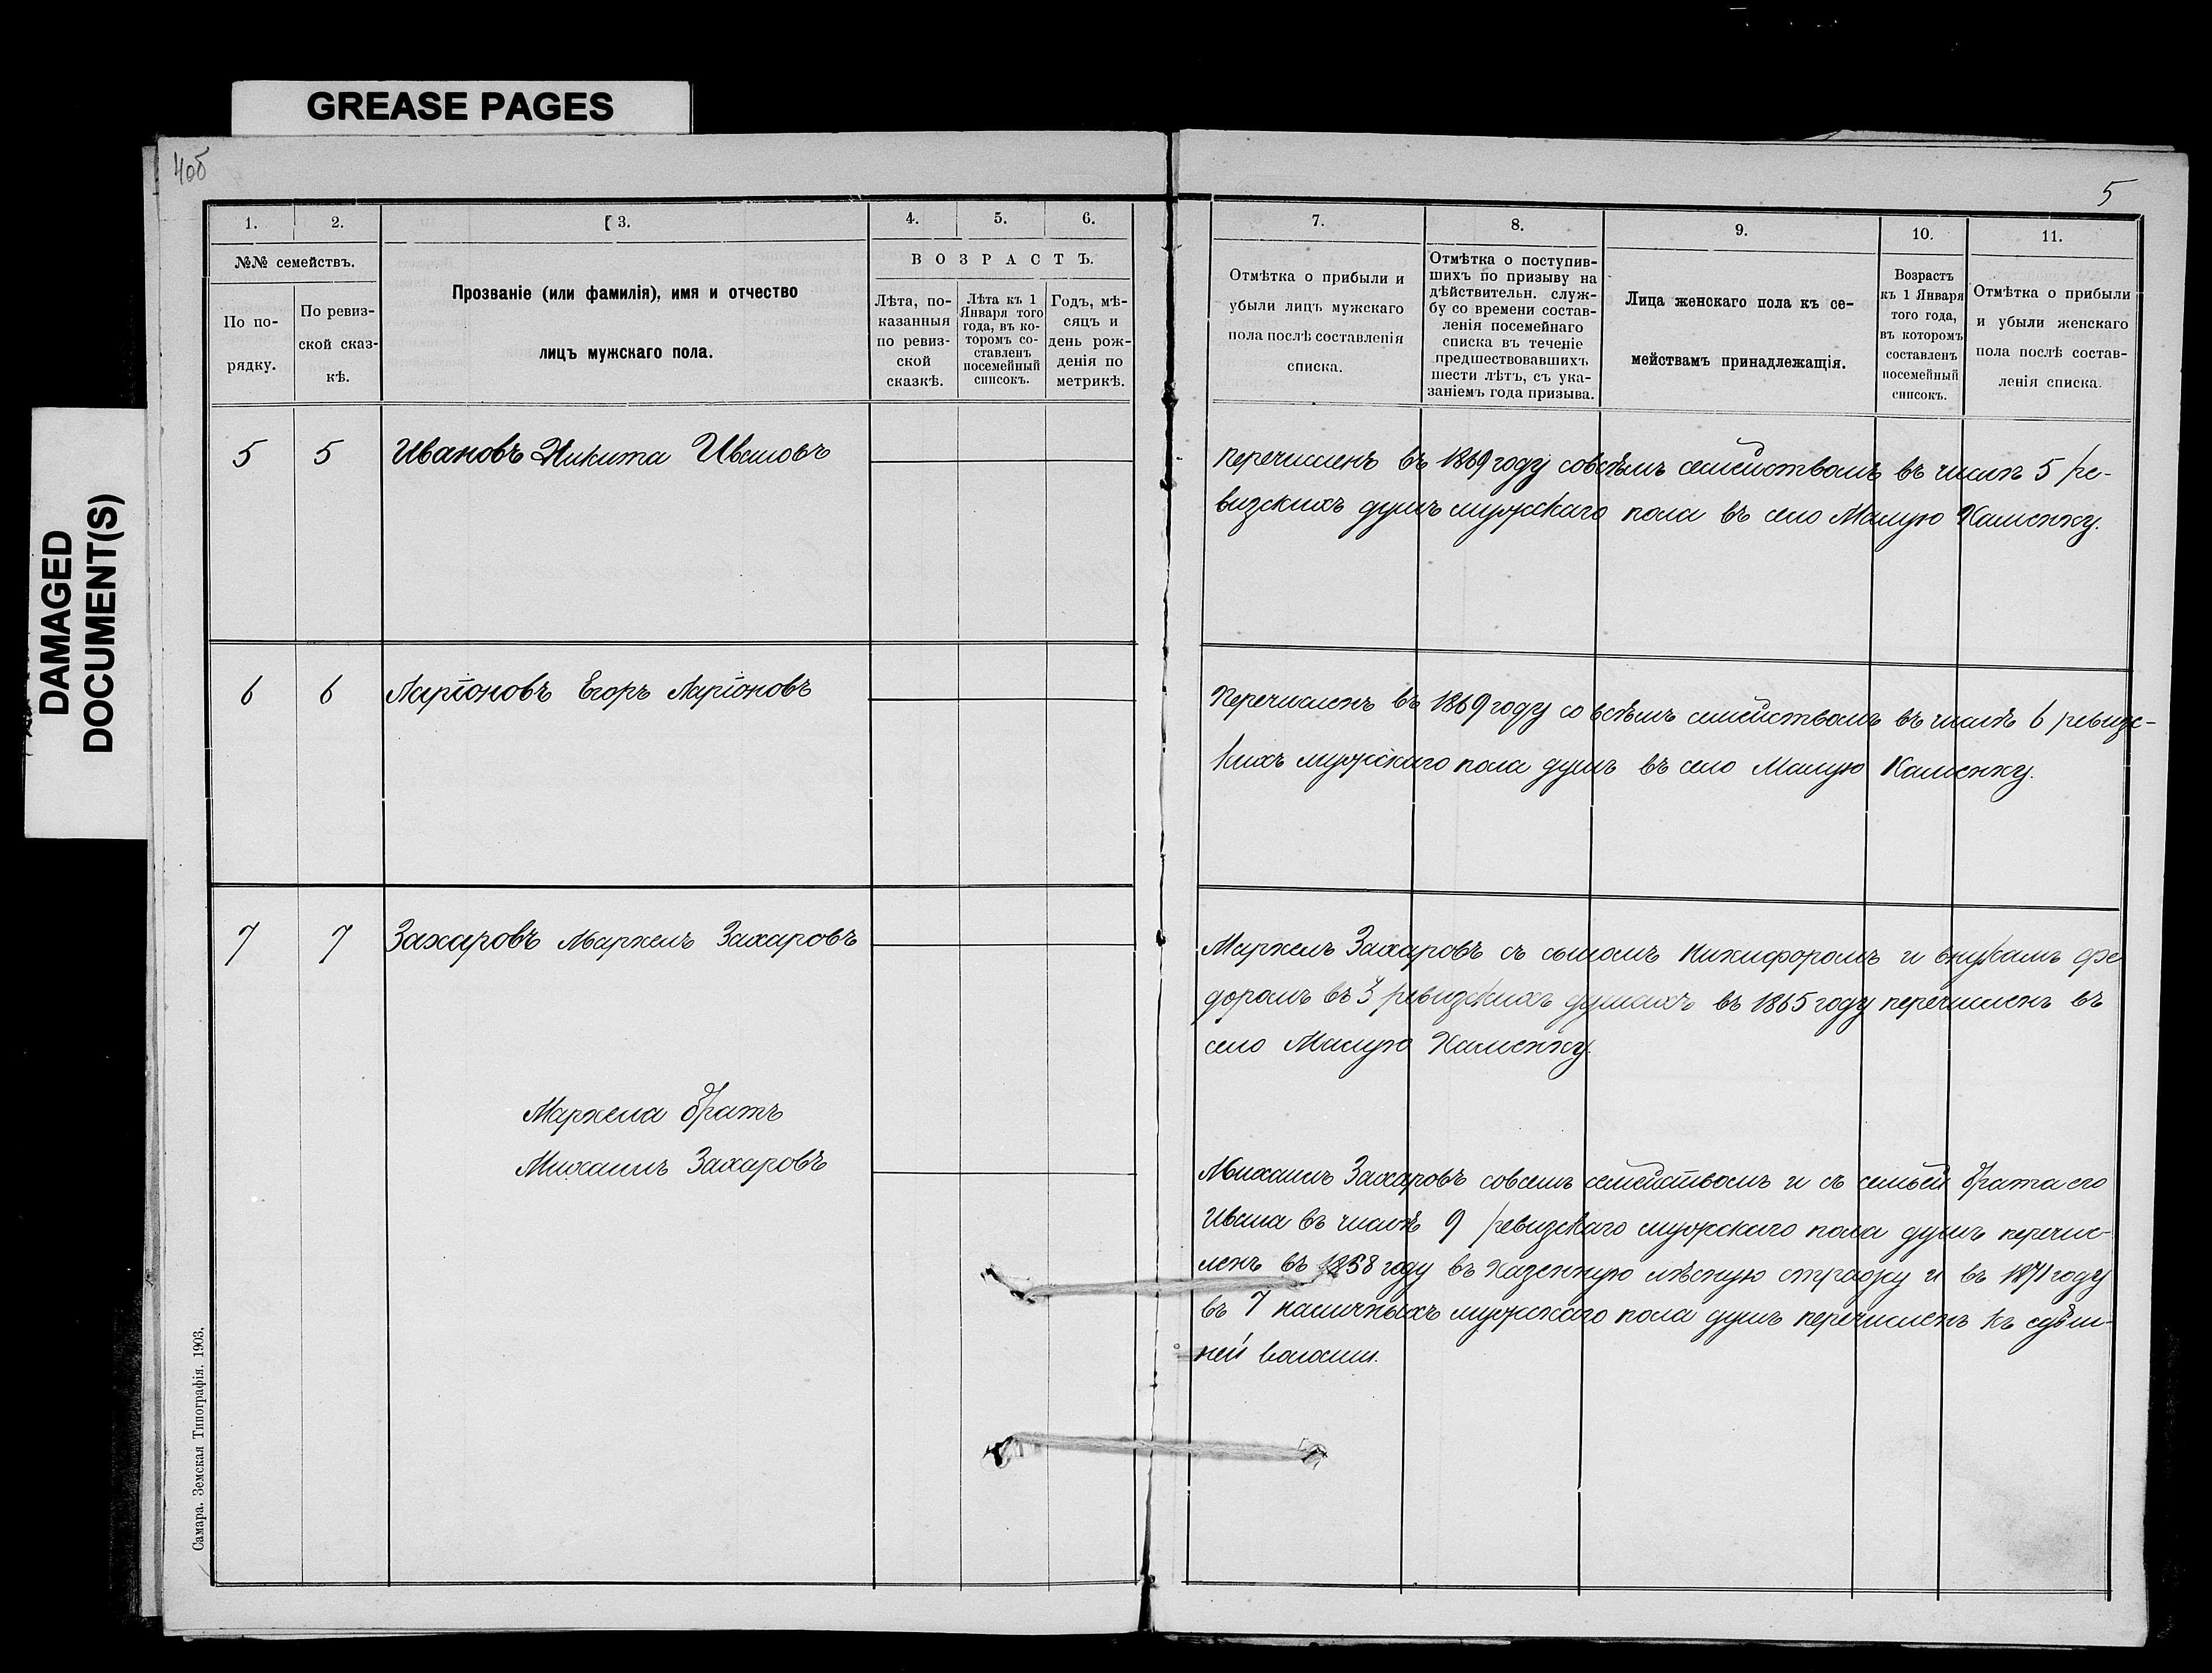 GREASE PAGES
DAMAGED
DOCUMENT(S)
4об
5
1.
2.
3.
4.
5.
6.
№№ семействъ.
По по-
рядку.
По ревиз-
ской сказ-
кѣ.
Прозваніе (или фамилія), имя и отчество
лицъ мужскаго пола.
ВОЗРАСТЪ.
Лѣта, по-
казанныя
по ревиз-
ской
сказкѣ.
Лѣта къ 1
Января того
года, въ ко-
торомъ со-
ставленъ
посемейный
списокъ.
Годъ, мѣ-
сяцъ и
день рож-
денія по
метрикѣ.
7.
8.
9.
10.
11.
Отмѣтка о прибыли и
убыли лицъ мужскаго
пола послѣ составленія
списка.
Отмѣтка о поступив-
шихъ по призыву на
дѣйствительн. служ-
бу со времени состав-
ленія посемейнаго
списка въ теченіе
предшествовавшихъ
шести лѣтъ, съ ука-
заніемъ года призыва.
Лица женскаго пола къ се-
мействамъ принадлежащія.
Возрастъ
къ 1 Января
того года,
въ которомъ
составленъ
посемейный
списокъ.
Отмѣтка о прибыли
и убыли женскаго
пола послѣ состав-
ленія списка.
5 5 Ивановъ Никита Ивановъ
перечисленъ въ 1869 году совсѣмъ семействомъ въ числѣ 5 ре-
визскихъ душъ мужскаго пола въ село Малую Каменку.
6 6 Ларіоновъ Егоръ Ларіоновъ
Перечисленъ въ 1869 году со всѣмъ семействомъ въ числѣ 6 ревизс-
кихъ мужскаго пола душъ въ село Малую Каменку.
7 7 Захаровъ Маркелъ Захаровъ
Маркелъ Захаровъ съ сыномъ Никифоромъ и внукамъ Фе
доромъ въ 3 ревизскихъ душахъ въ 1865 году перечисленъ въ
село Малую Каменку.
Маркела братъ
Михаилъ Захаровъ
Михаилъ Захаровъ совсемъ семействомъ и съ семьей брата его
Ивана въ числѣ 9 ревизскаго мужскаго пола душъ перечис-
ленъ въ 1858 году въ казенную лѣсную стражу и въ 1871 году
въ 7 наличныхъ мужскаго пола душъ перечисленъ къ здѣш-
ней волости.
Самара. Земская Типографія. 1903.